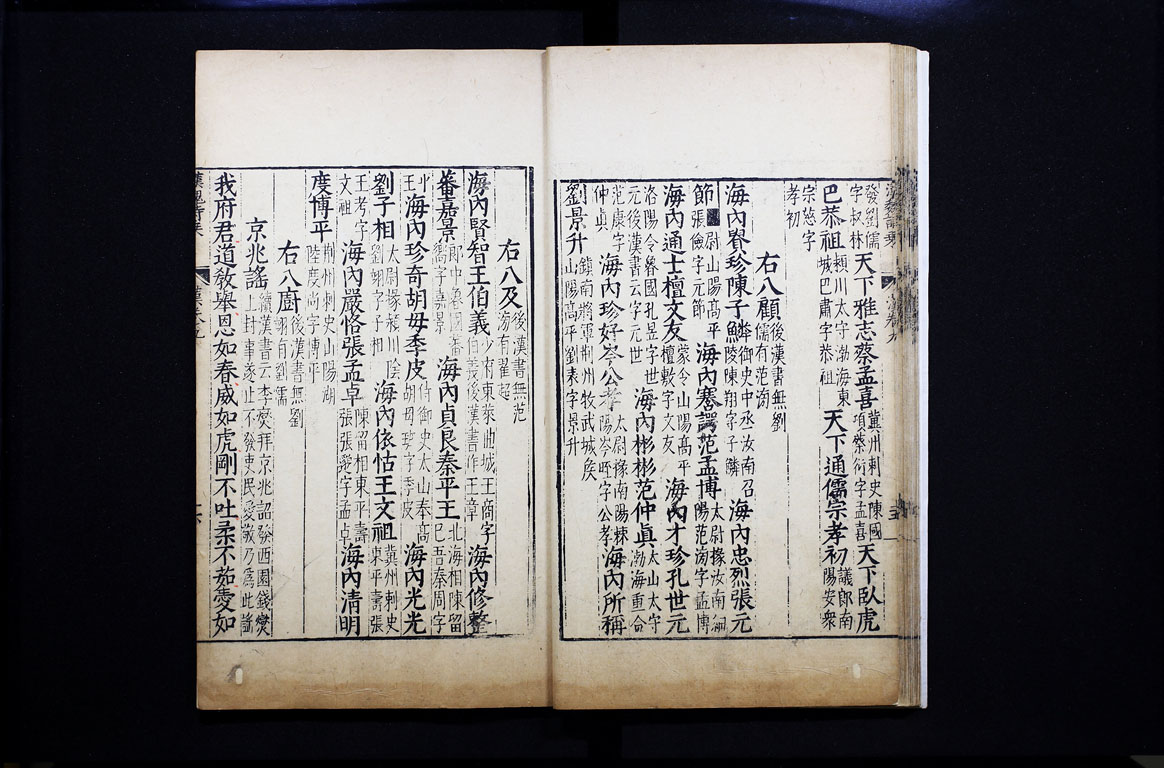 發劉儒字叔林天下雅志蔡孟喜冀州刺史陳國項蔡衍字孟喜天下臥虎
巴恭祖潁川太守渤海東城巴肅字恭祖天下通儒宗孝初議郎南陽安衆
宗慈字孝初
右八顧後漢書無劉儒有范滂
海內賮珍陳子鱗御史中丞汝南召陵陳翔字子鱗海內忠烈張元
節尉山陽高平張儉字元節海內謇諤范孟博太尉掾汝南細陽范滂字孟博
海內通士檀文友蒙令山陽高平檀敷字文友海內才珍孔世元
洛陽令魯國孔昱字世元後漢書云字元世海內彬彬范仲眞太山太守渤海重合
范康字仲眞海內珍好岑公孝太尉掾南陽棘陽岑晊字公孝海內所稱
劉景升鎮南將軍荆州牧武城侯山陽高平劉表字景升
右八及後漢書無范滂有翟超
海內賢智王伯義少府東萊曲城王商字伯義後漢書作王章海內修整
蕃嘉景郎中魯國蕃嚮字嘉景海內貞良秦平王北海相陳留己吾秦周字
平王海內珍奇胡毋季皮侍御史太山奉高胡毋班字季皮海內光光
劉子相太尉掾潁川陰劉翊字子相海內依怙王文祖冀州刺史東平壽張
王考字文祖海內嚴恪張孟卓陳留相東平壽張張邈字孟卓海內清明
度博平荆州刺史山陽湖陸度尚字博平
右八廚後漢書無劉翊有劉儒
京兆謠續漢書云李燮拜京兆詔發西園錢燮上封事遂止不發吏民愛敬乃爲此謠
我府君道教舉恩如春威如虎剛不吐柔不茹愛如